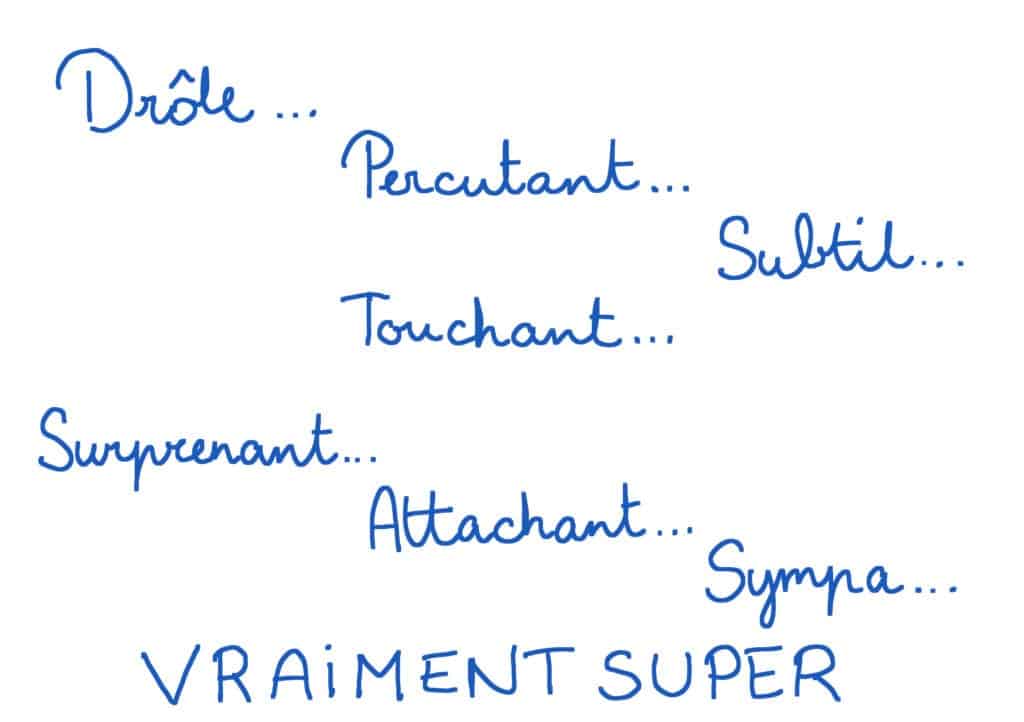 Drôle...
Percutant...
Subtil...
Touchant...
Surprenant...
Attachant...
Sympa...
VRAiMENT SUPER